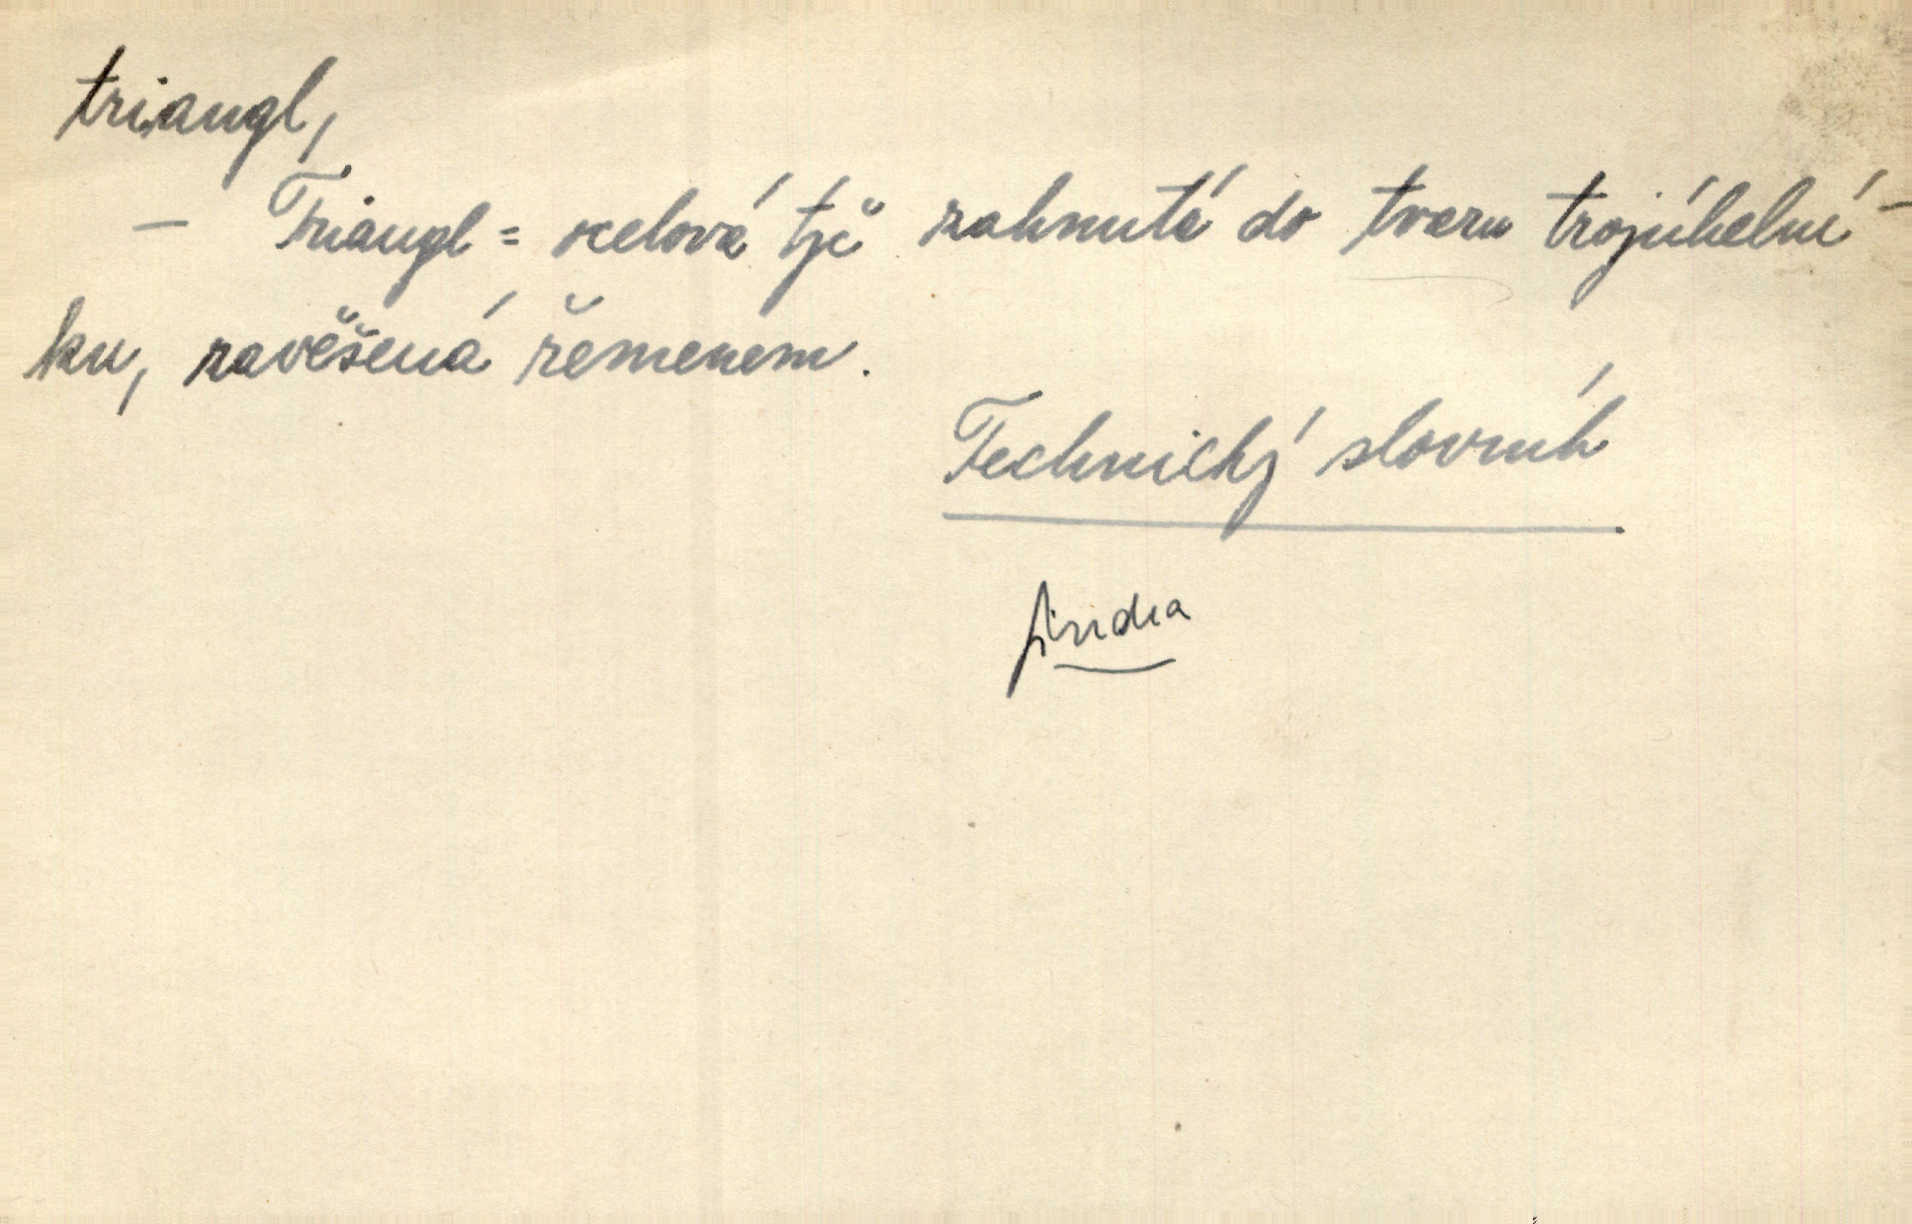 triangl,
– Triangl = ocelová tyč zahnutá do tvaru trojúhelní-
ku, zavěšená řemenem.
Technický slovník